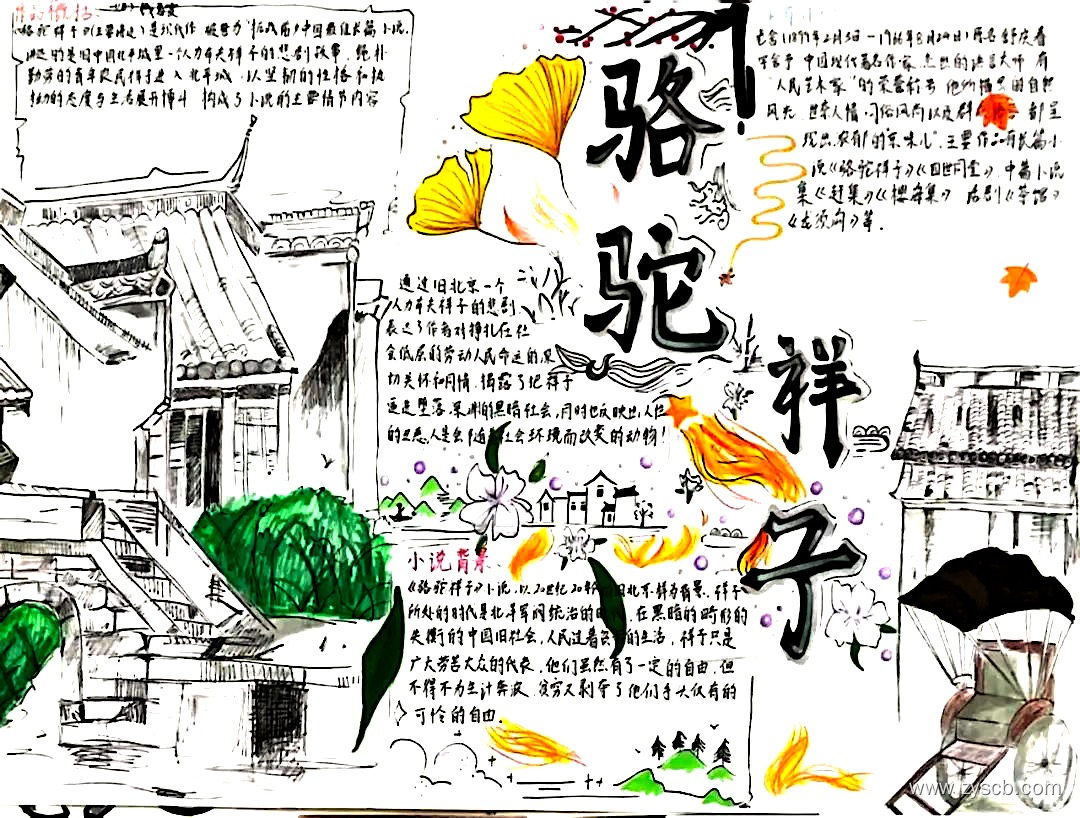 作品概括:
《骆驼祥子》
抗战前中国最佳长篇小说.
讲述的是旧中国北平城里一个人力车夫祥子的悲剧故事,
勤劳的青年农民祥子进入北平城,以坚韧的性格和执
拗的态度与生活展开搏斗 构成了小说的主要情节内容
骆驼祥子
老舍(1899年2月3日—1966年8月24日)原名舒庆春
字舍予 中国现代著名作家、杰出的语言大师 有
"人民艺术家"的荣誉称号 他
风光、世态人情、习俗风尚以及群 都呈
现出浓郁的"京味儿",主要作品有长篇小
说《骆驼祥子》《四世同堂》,中篇小说
集《赶集》《樱海集》 话剧《茶馆》
《龙须沟》等.
通过旧北京一个
人力车夫祥子的悲剧,
表达了作者对挣扎在社
会低层的劳动人民命运的深
切关怀和同情,揭露了把祥子
逼进堕落深渊的黑暗社会,同时也反映出,人性
的丑恶,人是会随着社会环境而改变的动物!
小说背景
《骆驼祥子》小说,以20世纪20年 旧北京 为背景.祥子
所处的时代是北平军阀统治的时 在黑暗的畸形的
失衡的中国旧社会,人民过着 的生活,祥子只是
广大劳苦大众的代表.他们虽然有了一定的自由,但
不得不为生计奔波,贫穷又剥夺了他们手大仅有的
可怜的自由.
www.lzyscb.com